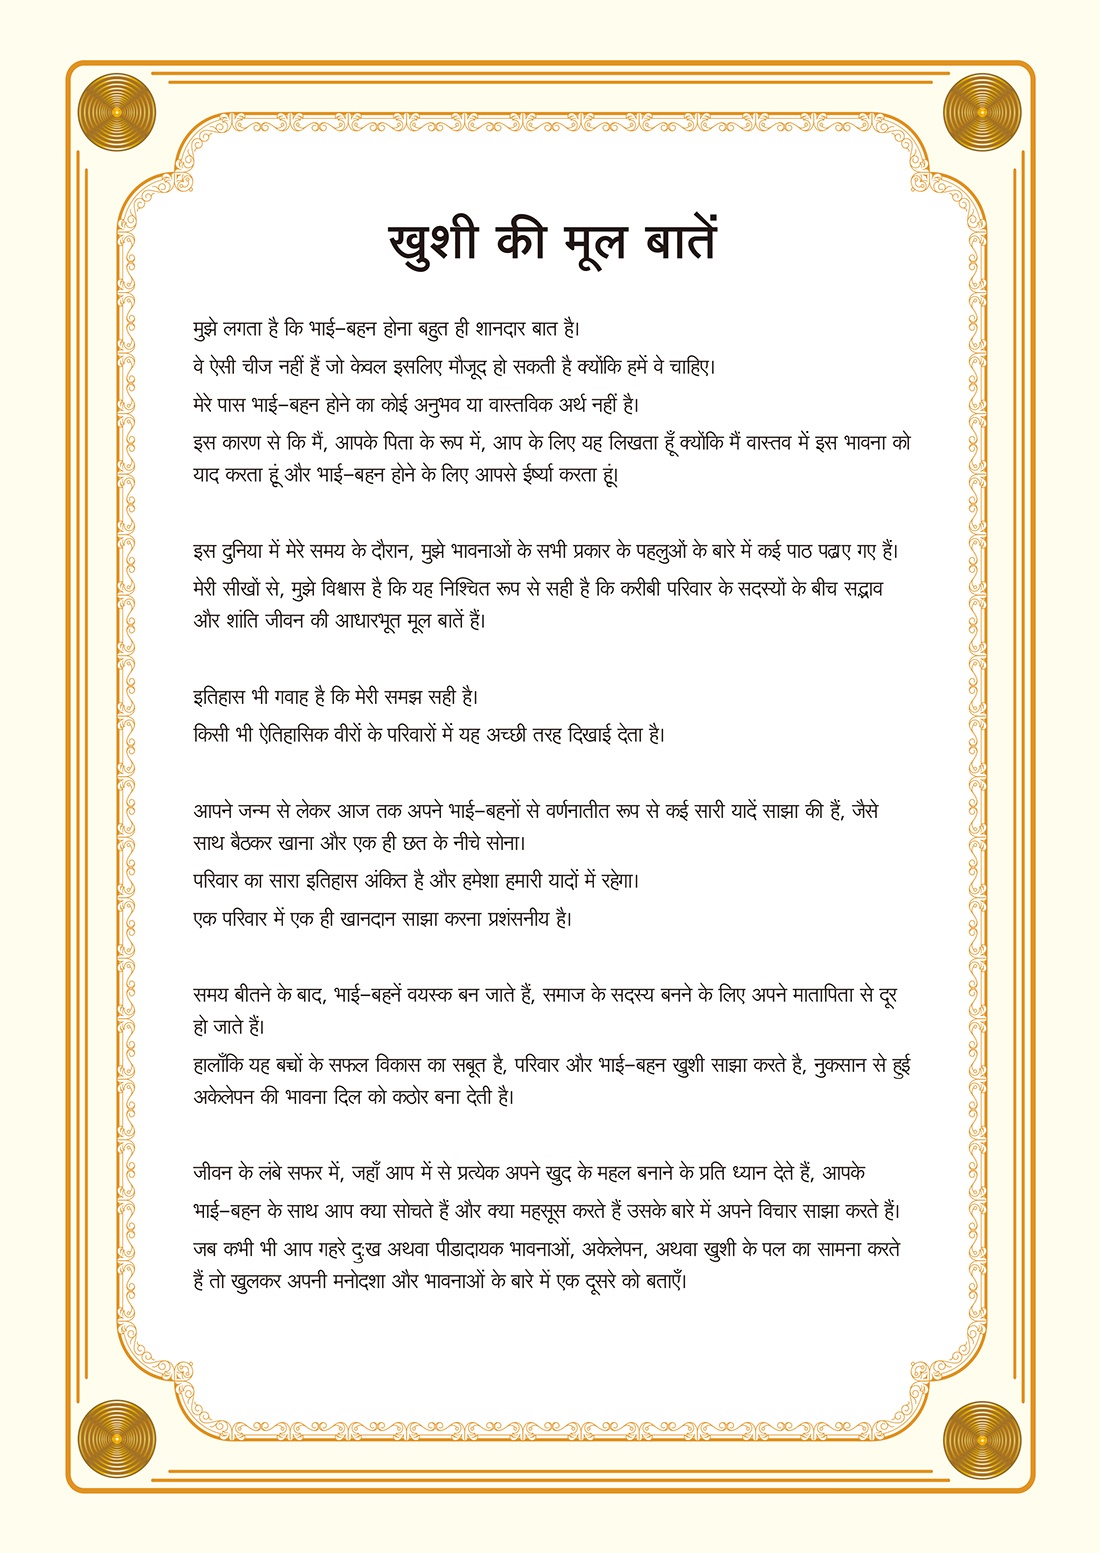 खुशी की मूल बातें
मुझे लगता है कि भाई–बहन होना बहुत ही शानदार बात है।
वे ऐसी चीज नहीं हैं जो केवल इसलिए मौजूद हो सकती है क्योंकि हमें वे चाहिए।
मेरे पास भाई–बहन होने का कोई अनुभव या वास्तविक अर्थ नहीं है।
इस कारण से कि मैं, आपके पिता के रूप में, आप के लिए यह लिखता हूँ क्योंकि मैं वास्तव में इस भावना को
याद करता हूं और भाई–बहन होने के लिए आपसे ईर्ष्या करता हूं।
इस दुनिया में मेरे समय के दौरान, मुझे भावनाओं के सभी प्रकार के पहलुओं के बारे में कई पाठ पढ़ाए गए हैं।
मेरी सीखों से, मुझे विश्वास है कि यह निश्चित रूप से सही है कि करीबी परिवार के सदस्यों के बीच सद्भाव
और शांति जीवन की आधारभूत मूल बातें हैं।
इतिहास भी गवाह है कि मेरी समझ सही है।
किसी भी ऐतिहासिक वीरों के परिवारों में यह अच्छी तरह दिखाई देता है।
आपने जन्म से लेकर आज तक अपने भाई–बहनों से वर्णनातीत रूप से कई सारी यादें साझा की हैं, जैसे
साथ बैठकर खाना और एक ही छत के नीचे सोना।
परिवार का सारा इतिहास अंकित है और हमेशा हमारी यादों में रहेगा।
एक परिवार में एक ही खानदान साझा करना प्रशंसनीय है।
समय बीतने के बाद, भाई–बहनें वयस्क बन जाते हैं, समाज के सदस्य बनने के लिए अपने मातापिता से दूर
हो जाते हैं।
हालाँकि यह बच्चों के सफल विकास का सबूत है, परिवार और भाई–बहन खुशी साझा करते है, नुकसान से हुई
अकेलेपन की भावना दिल को कठोर बना देती है।
जीवन के लंबे सफर में, जहाँ आप में से प्रत्येक अपने खुद के महल बनाने के प्रति ध्यान देते हैं, आपके
भाई–बहन के साथ आप क्या सोचते हैं और क्या महसूस करते हैं उसके बारे में अपने विचार साझा करते हैं।
जब कभी भी आप गहरे दुःख अथवा पीडादायक भावनाओं, अकेलेपन, अथवा खुशी के पल का सामना करते
हैं तो खुलकर अपनी मनोदशा और भावनाओं के बारे में एक दूसरे को बताएँ।